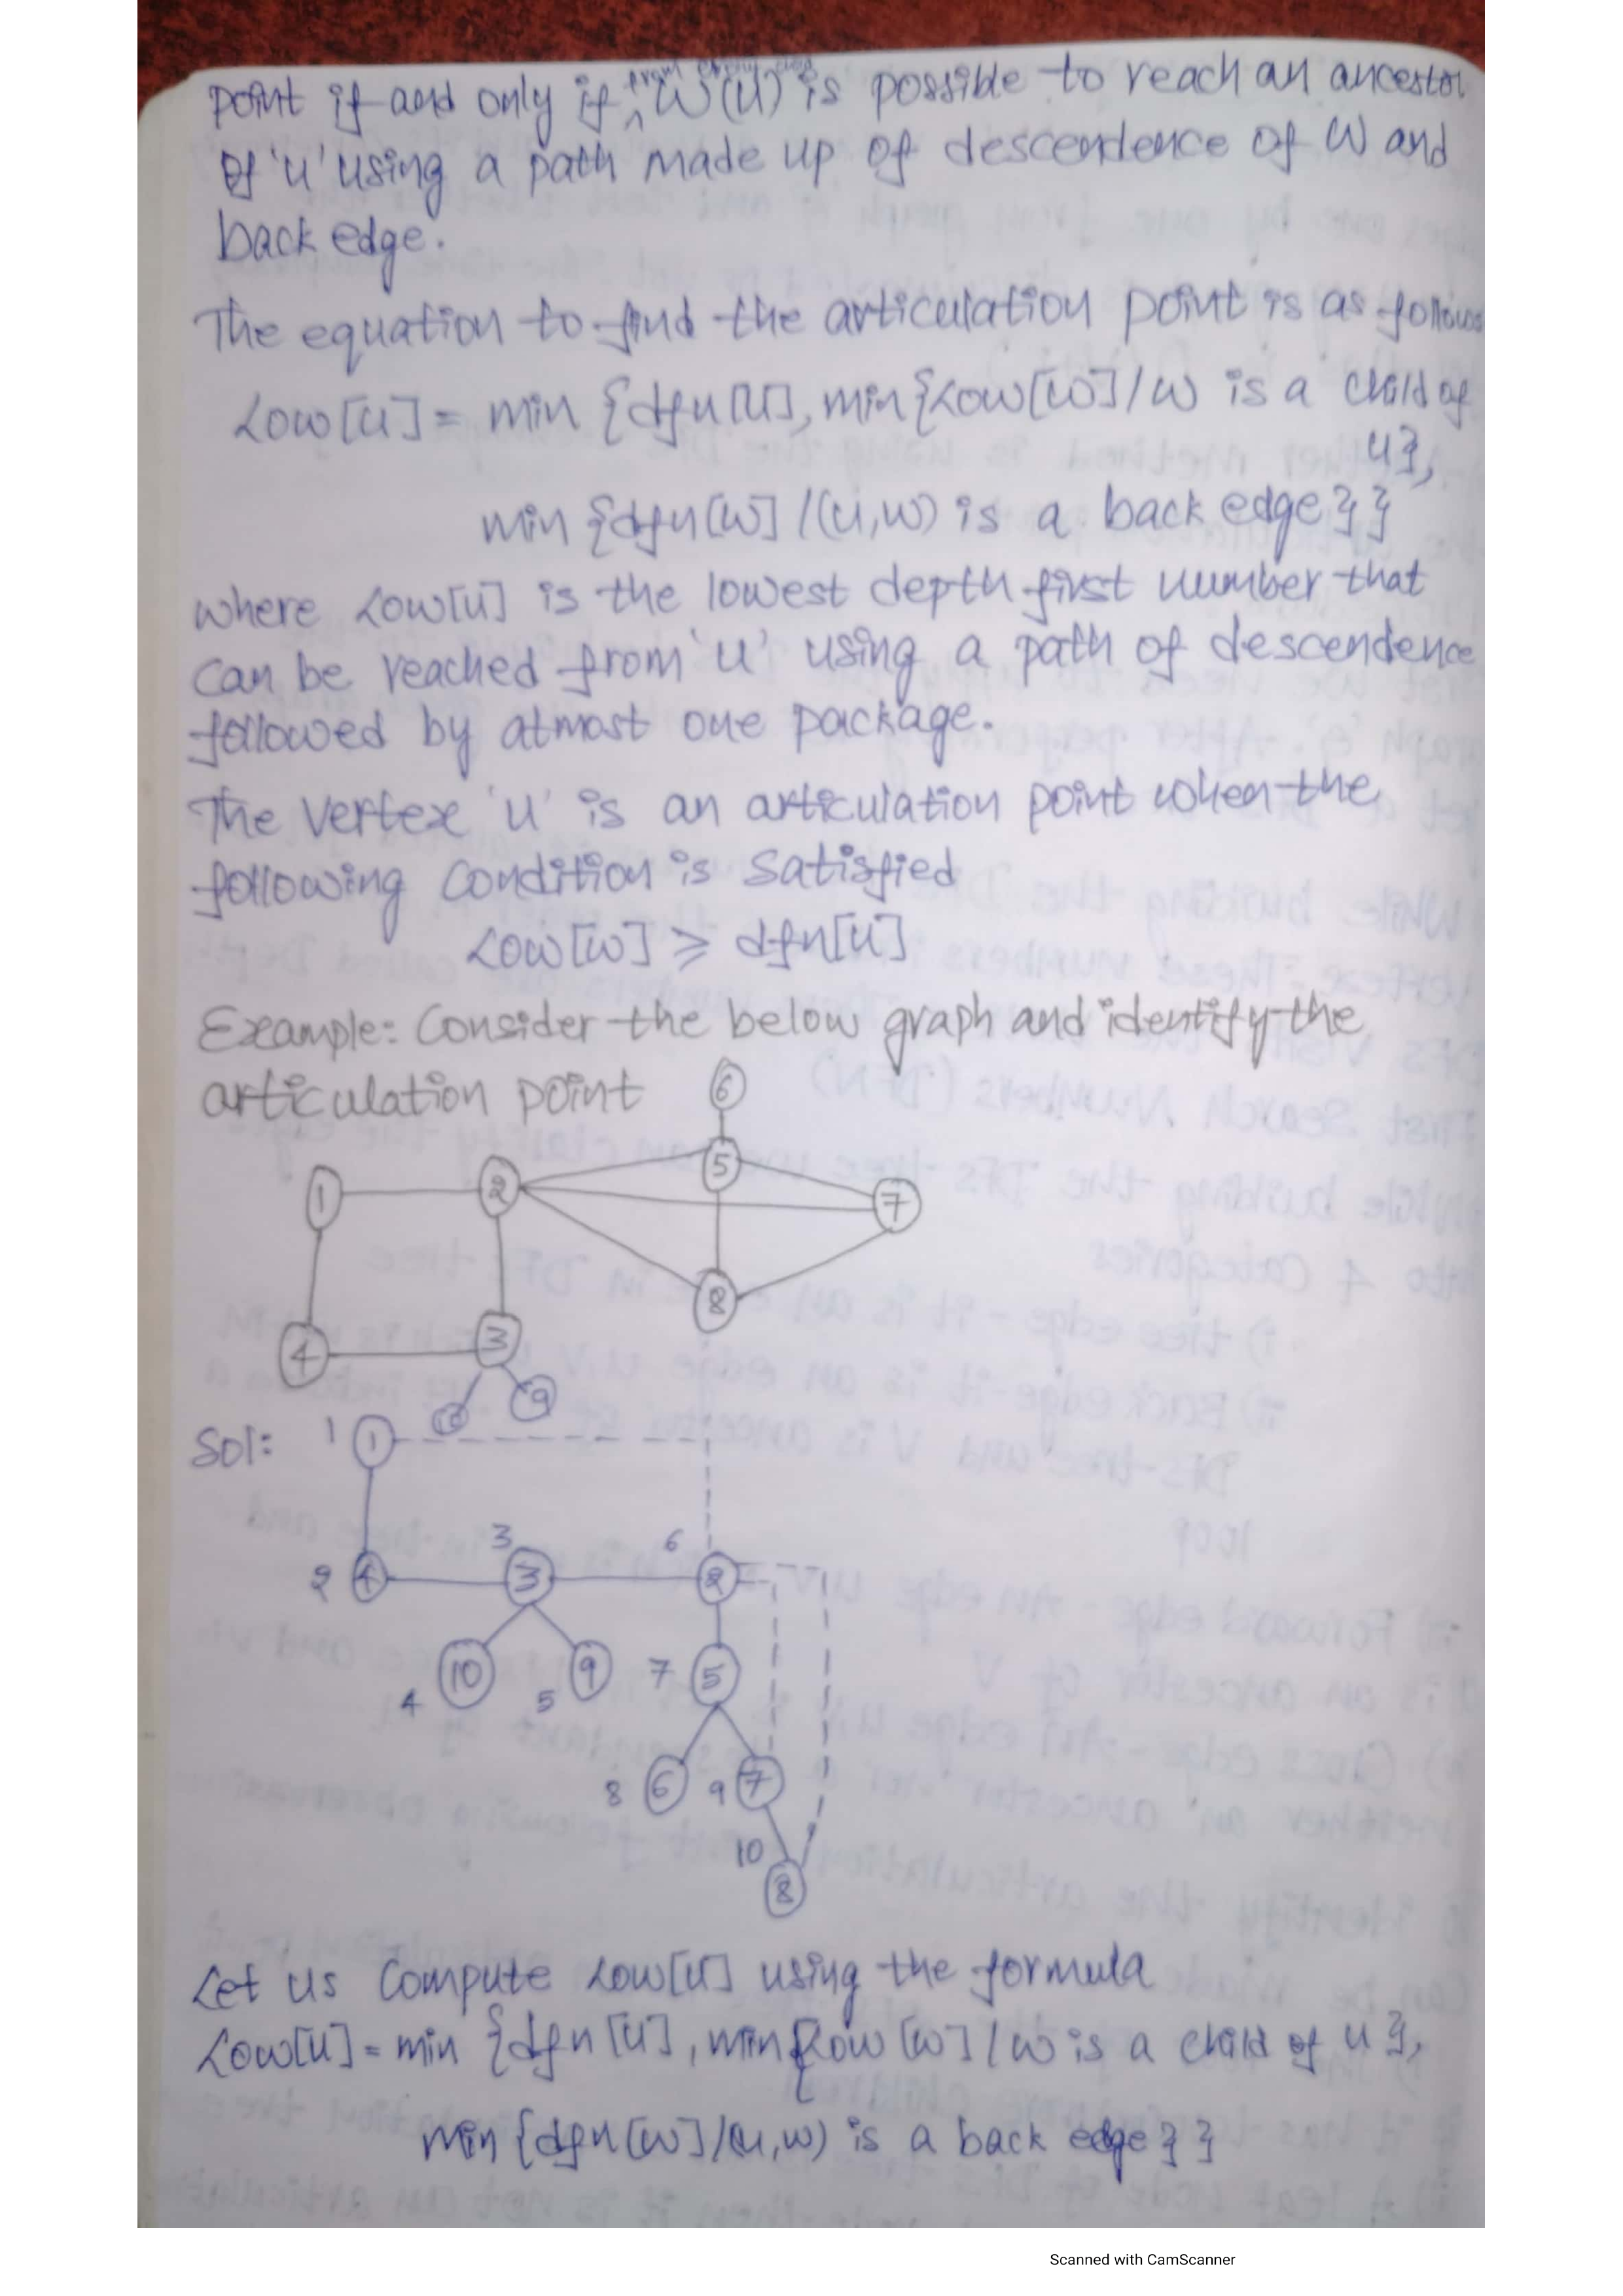 point if and only if from every child W(u) is possible to reach an ancestor
of 'u' using a path made up of descendence of W and
back edge.
The equation to find the articulation point is as follows
Low[u] = min {dfn[u], min{Low[w]/w is a child of
u},
min {dfn[w] /(u,w) is a back edge}}
where Low[u] is the lowest depth first number that
can be reached from 'u' using a path of descendence
followed by atmost one package.
The vertex 'u' is an articulation point when the
following condition is satisfied
Low[w] ≥ dfn[u]
Example: Consider the below graph and identify the
articulation point
6
5
1 2 7
8
4 3
10 9
Sol: 1 1
3 6
2 4 3 2
10 9 7 5
4 5
8 6 9 7
10
8
Let us compute Low[u] using the formula
Low[u] = min {dfn[u], min{Low [w] / w is a child of u},
min {dfn[w]/(u,w) is a back edge}}
Scanned with CamScanner